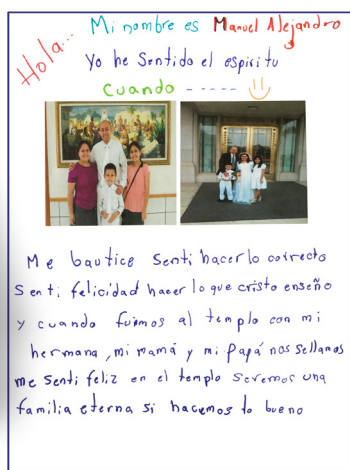 Hola...
Mi nombre es Manuel Alejandro
Yo he Sentido el espiritu
Cuando -----
Me bautice Senti hacer lo correcto
Senti felicidad hacer lo que cristo enseño
y cuando fuimos al templo con mi
hermana, mi mamá y mi papá nos sellamos
me Senti feliz en el templo Seremos una
familia eterna si hacemos lo bueno